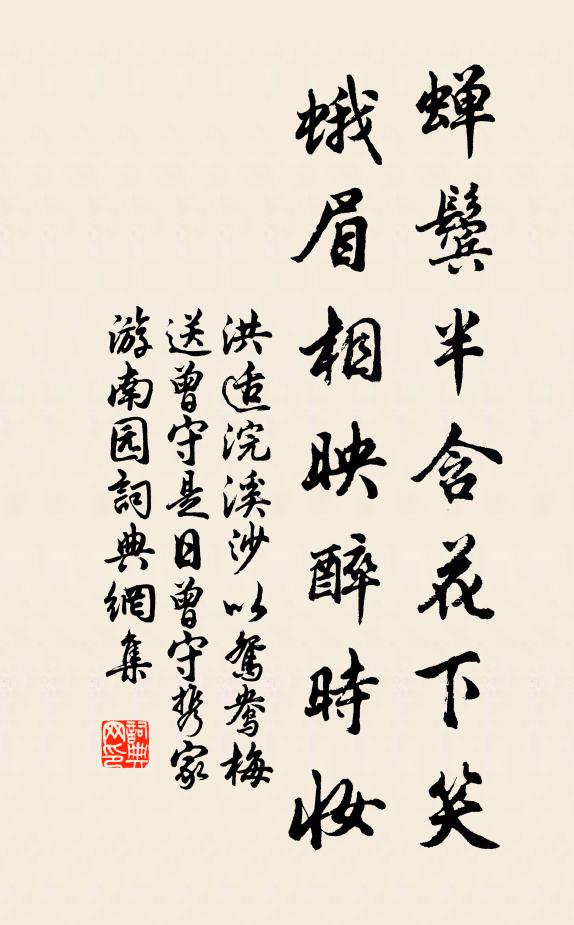 蝉鬓半含花下笑
蛾眉相映醉時妝
洪适浣溪沙以鸳鸯梅
送曾守是日曾守携家
游南园詞典網集
詞典網印